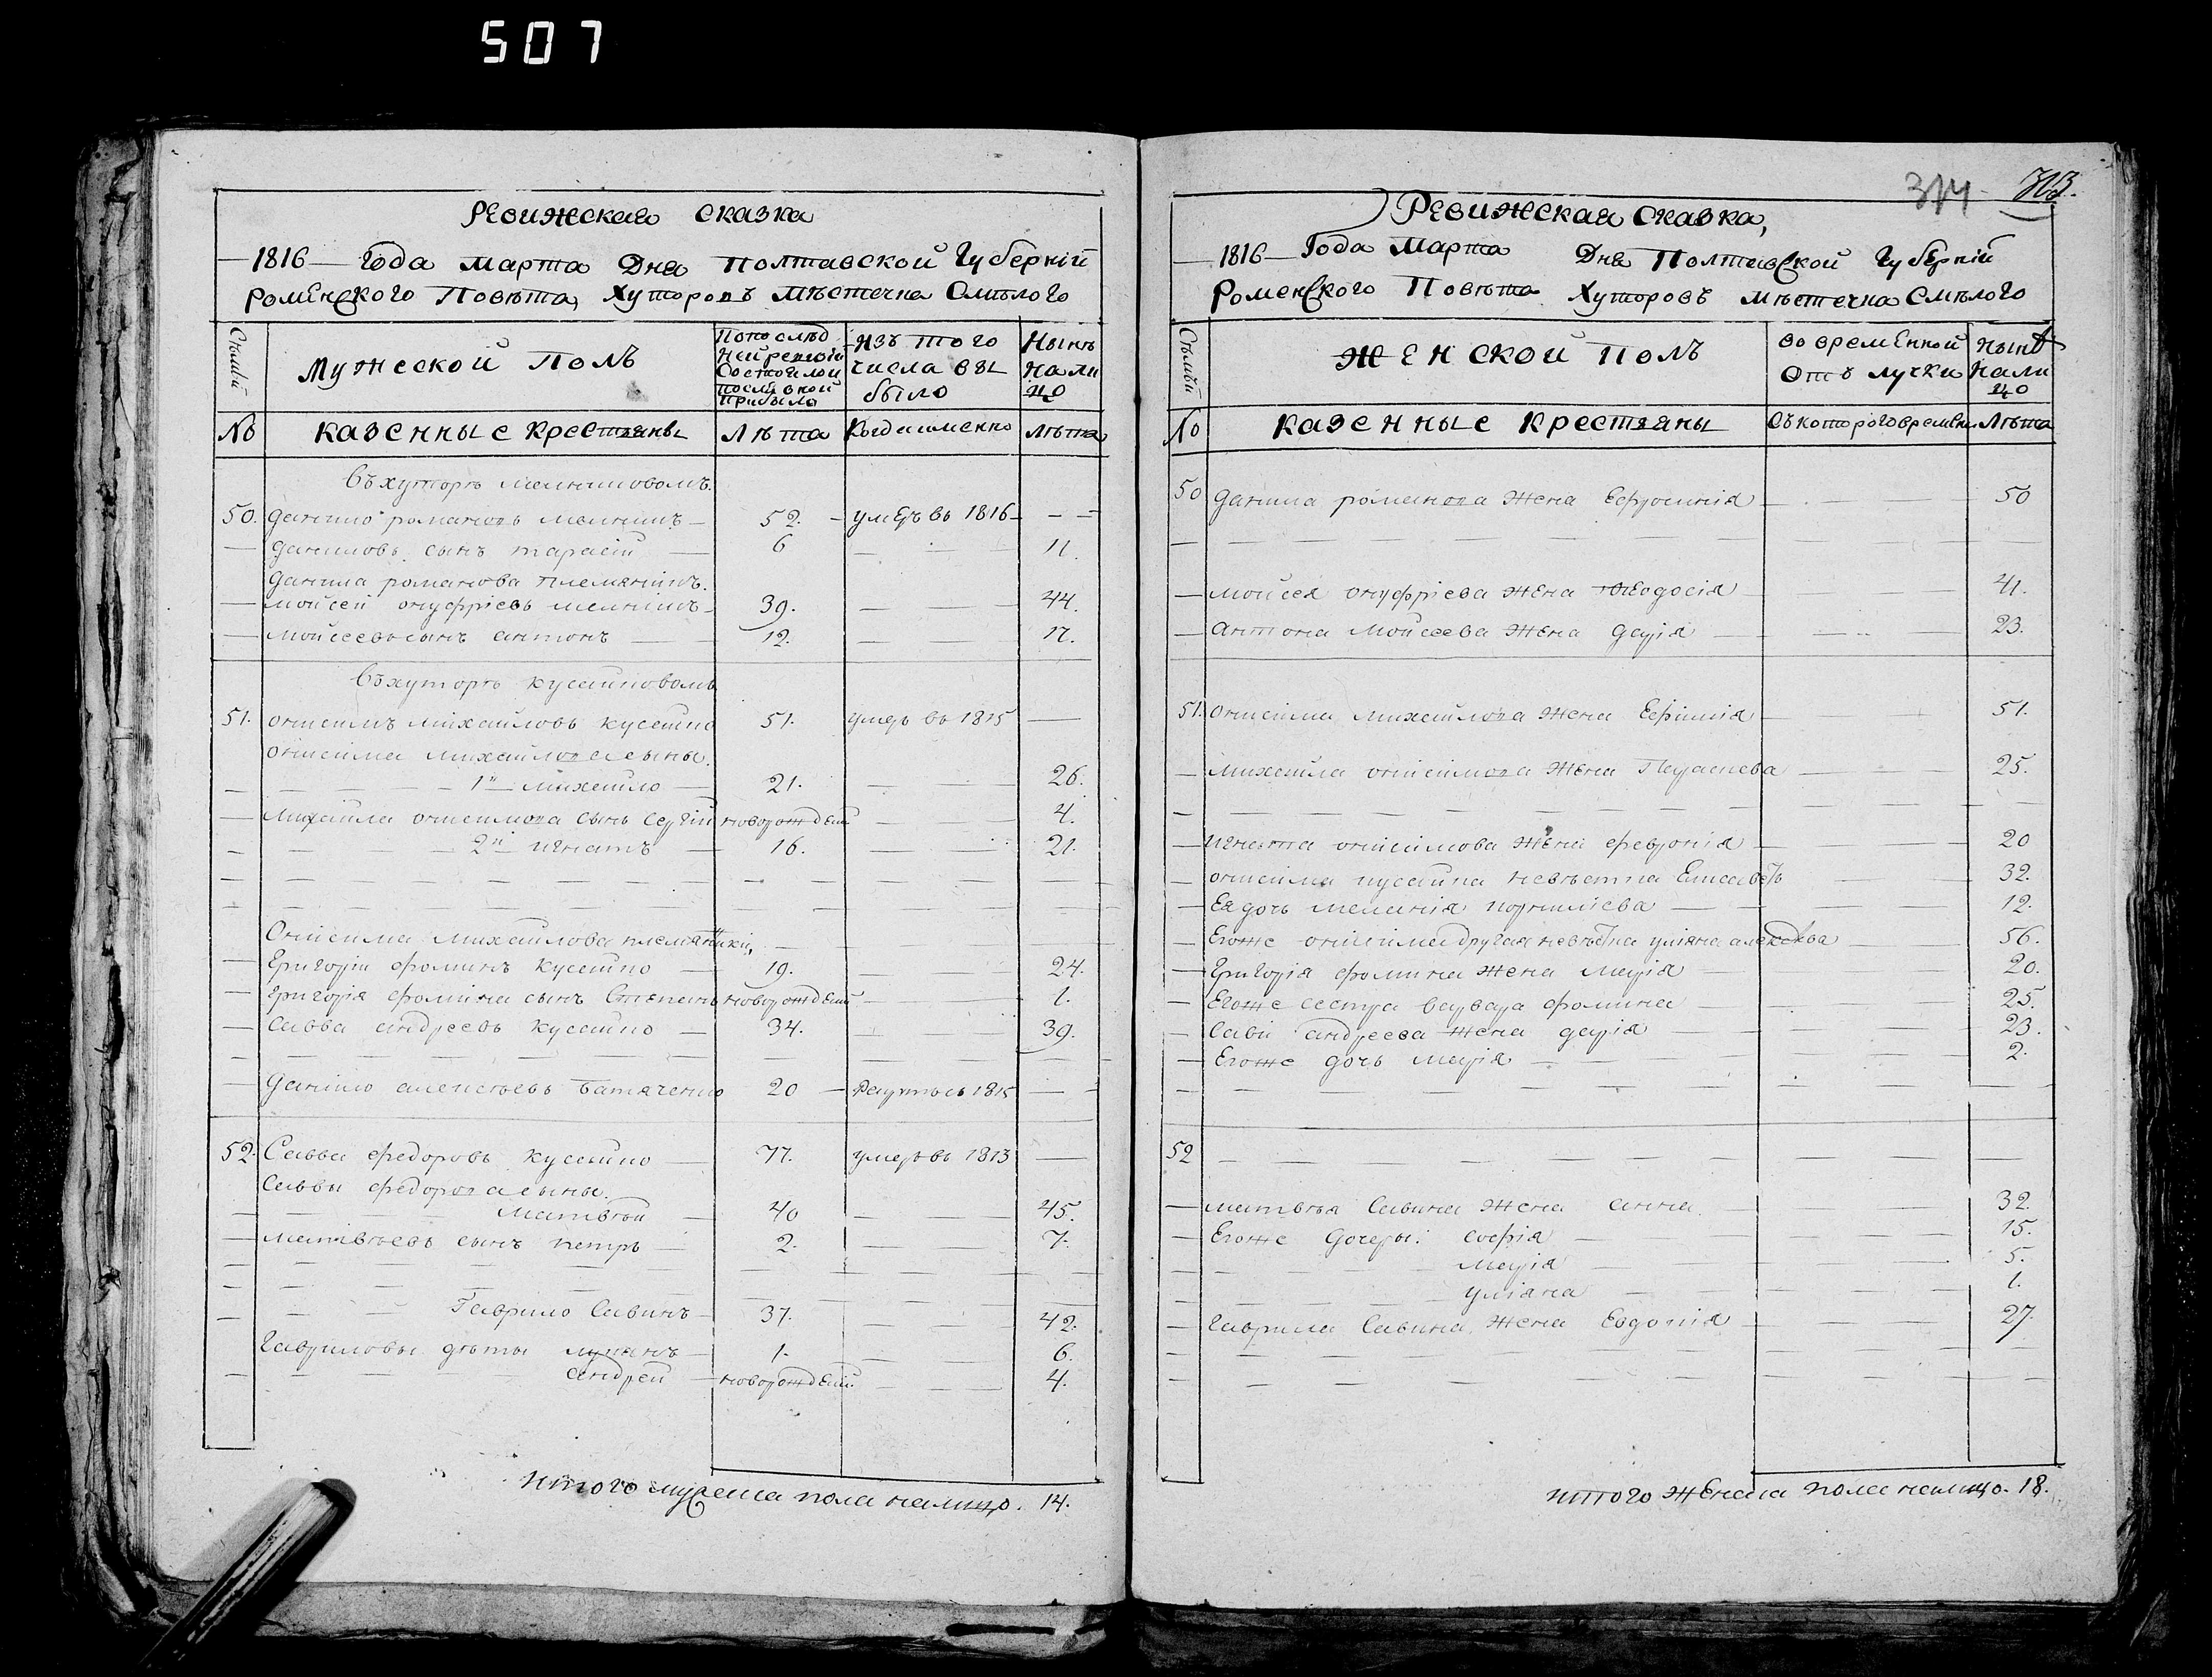 507
Ревижская сказка
1816 Года Марта Дня Полтавской Губерніи
Роменского Повѣта, Хуторовъ Мѣстечка Смѣлого
Мужеской Полъ
По послѣд
ней ревизіи
Состояло и
послѣ оной
прибыло
Изъ того
числа вы
было
Нынѣ
нали
цо
№ казенные крестяны Лѣта Когда именно Лѣта
Въ хуторѣ
50. Данило романовъ 52. умеръ въ 1816
Даниловъ сынъ тарасій 6 11.
Данила романова племянникъ
Мойсей онуфріевъ 39. 44.
Мойсеевъ сынъ антонъ 12. 17.
Въ хуторѣ
51. онисимъ михайловъ 51. умеръ въ 1815
онисима михайлова сыны.
1й михайло 21. 26.
Михайла онисимова сынъ сергій новорожденый 4.
2й игнатъ 16. 21.
Онисима михайлова племянники,
Григорій фоминъ 19. 24.
Григорія фомина сынъ Степанъ новорожденый 1.
Савва андреевъ 34. 39.
Данило алексѣевъ 20 1815
52. Савва федоровъ 77. умеръ въ 1813
Саввы федорова сыны.
Матвѣй 40 45.
Матвѣевъ сынъ петръ 2. 7.
Гаврило Савинъ 37. 42.
Гавриловы дѣты лукянъ 1. 6.
андрей новорожденый 4.
Итого пола налицо. 14.
703.
Ревижская Сказка,
1816 Года Марта Дня Полтавской Губерніи
Роменского Повѣта Хуторовъ Мѣстечка Смѣлого
Женской полъ
во временной
отълучки
нынѣ
нали
цо
№ казенные крестяны Съ которого времени Лѣта
50 Данила романова жена Ефросинія 50
мойсея онуфріева жена Феодосія 41.
антона Мойсеева жена дарія 23.
51. онисима михайлова жена Ефимія 51.
михайла онисимова жена 25.
игната онисимова жена февронія 20
онисима невѣстка Елисаветъ 32.
Ея дочь меланія 12.
Егоже онисима другая невѣстка уліяна 56.
Григорія фомина жена марія 20.
Егоже сестра варвара фомина 25.
Савы андреева жена дарія 23.
Егоже дочь марія 2.
52
матвѣя Савина жена анна 32.
Егоже Дочеры: софія 15.
марія 5.
уліяна 1.
Гаврила Савина жена Евдокія 27.
итого пола налицо. 18.